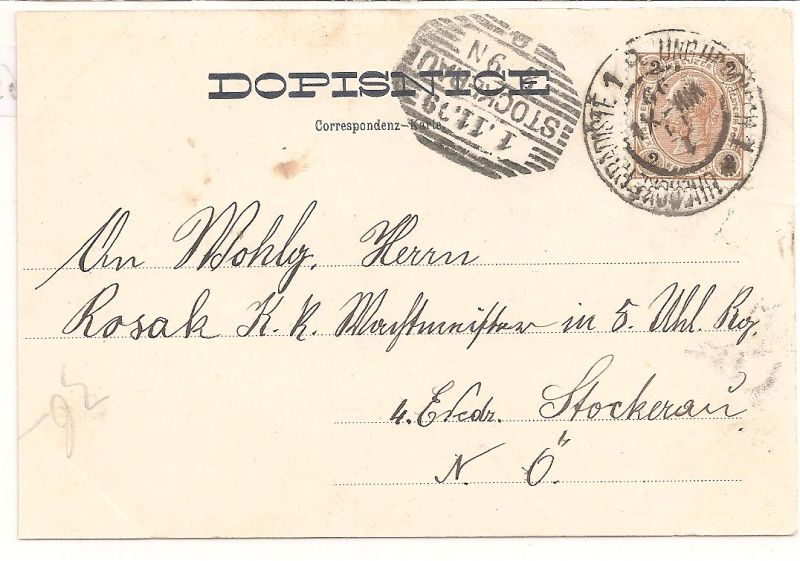 DOPISNICE
Correspondenz-Karte
STOCKERAU
1.11.99
9 N
UNG. HRADISCH
UHERSKÉ HRADIŠTĚ 1
An Wohlg. Herrn
Rosak K. k. Wachtmeister in 5. Uhl. Rg.
4. Escdr. Stockerau
N. Ö.